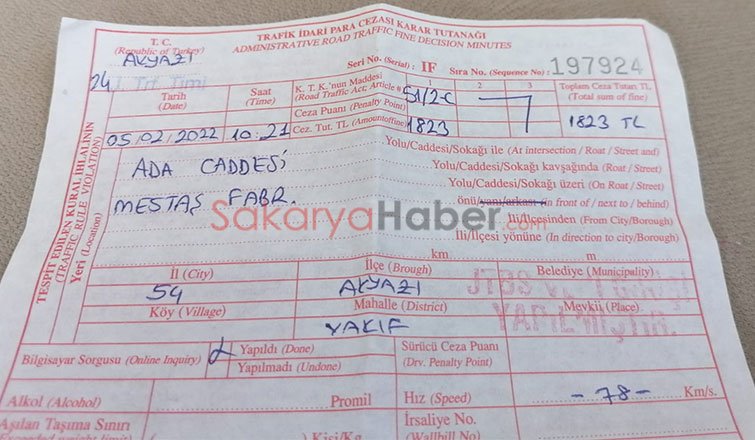 TRAFİK İDARİ PARA CEZASI KARAR TUTANAĞI
ADMINISTRATIVE ROAD TRAFFIC FINE DECISION MINUTES
T. C.
(Republic of Turkey)
AKYAZI
Seri No. (Serial) : IF Sıra No. (Sequence No) : 197924
24
Tarih
(Date)
Saat
(Time)
K. T. K.'nun Maddesi
(Road Traffic Act; Article #)
1 2 3
51/2-C
Toplam Ceza Tutarı TL
(Total sum of fine)
Ceza Puanı (Penalty Point)
05.02.2022 10:21 Cez. Tut. TL (Amountoffine) 1823
1823 TL
TESPİT EDİLEN KURAL İHLALİNİN
(TRAFFIC RULE VIOLATION)
Yeri (Location)
ADA CADDESİ
MESTAŞ FABR.
Yolu/Caddesi/Sokağı ile (At intersection / Roat / Street and)
Yolu/Caddesi/Sokağı kavşağında (Roat / Street)
Yolu/Caddesi/Sokağı üzeri (On Roat / Street)
önü/yanı/arkası (in front of / next to / behind)
SakaryaHaber.com
İli/İlçesinden (From City/Borough)
İli/İlçesi yönüne (In direction to city/Borough)
km m
İl (City) İlçe (Brough) Belediye (Municipality)
54 AKYAZI
Köy (Village) Mahalle (District) Mevkii (Place)
VAKIF
YAPILMIŞTIR.
Bilgisayar Sorgusu (Online Inquiry)
Yapıldı (Done)
Yapılmadı (Undone)
Sürücü Ceza Puanı
(Drv. Penalty Point)
Alkol (Alcohol) Promil Hız (Speed) -78- Km/s.
Aşılan Taşıma Sınırı
Kişi/Kg
İrsaliye No.
(Wallbill No)